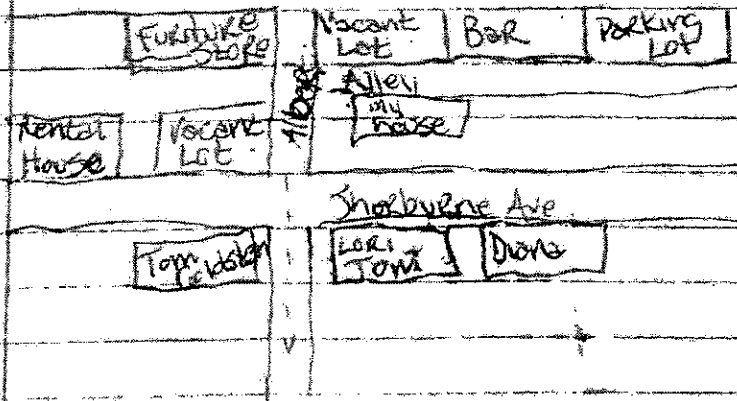 Furniture
Store
Vacant
Lot
BAR
Parking
Lot
Alley
my
house
Rental
House
Vacant
Lot
Sherburne Ave
Tom
LORI
Toni
Diana